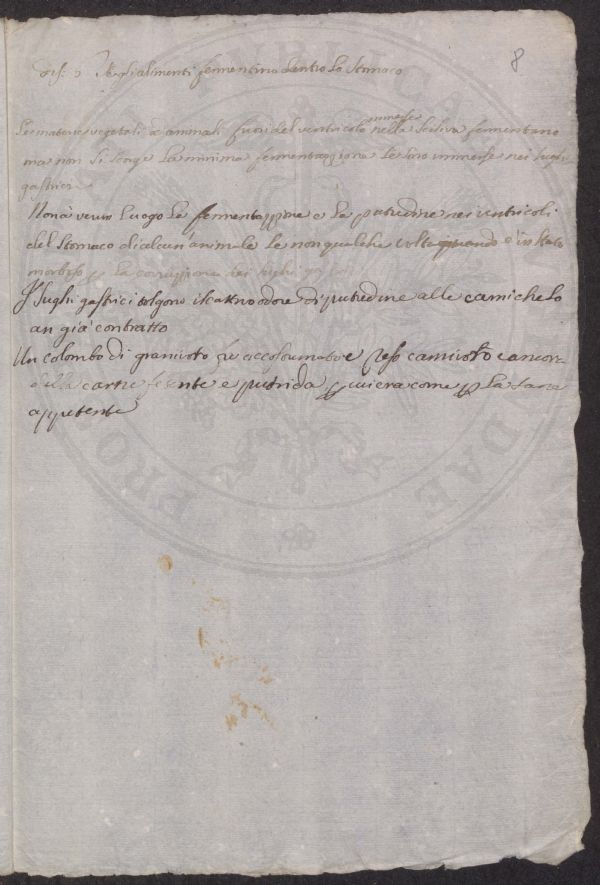 8
Dis: 5 Se gli alimenti fermentino dentro lo Stomaco
Le materie vegetali ed animali fuori del ventricolo immerse nella Sciliva fermentano
ma non si scorge la minima fermentazzione se sono immerse nei sughi
gastrici
Non à verun luogo la fermentazzione e la putredine nei ventricoli
del Stomaco di alcun animale se non qualche volta quando è in stato
morboso p la corruzzione dei sughi gastrici
I Sughi gastrici tolgono il cattivo odore di putredine alle carni che lo
an già contratto
Un colombo di granivoro fù accostumato e reso carnivoro e ancora
della carne fetente e putrida p maniera come p la sana
appetente